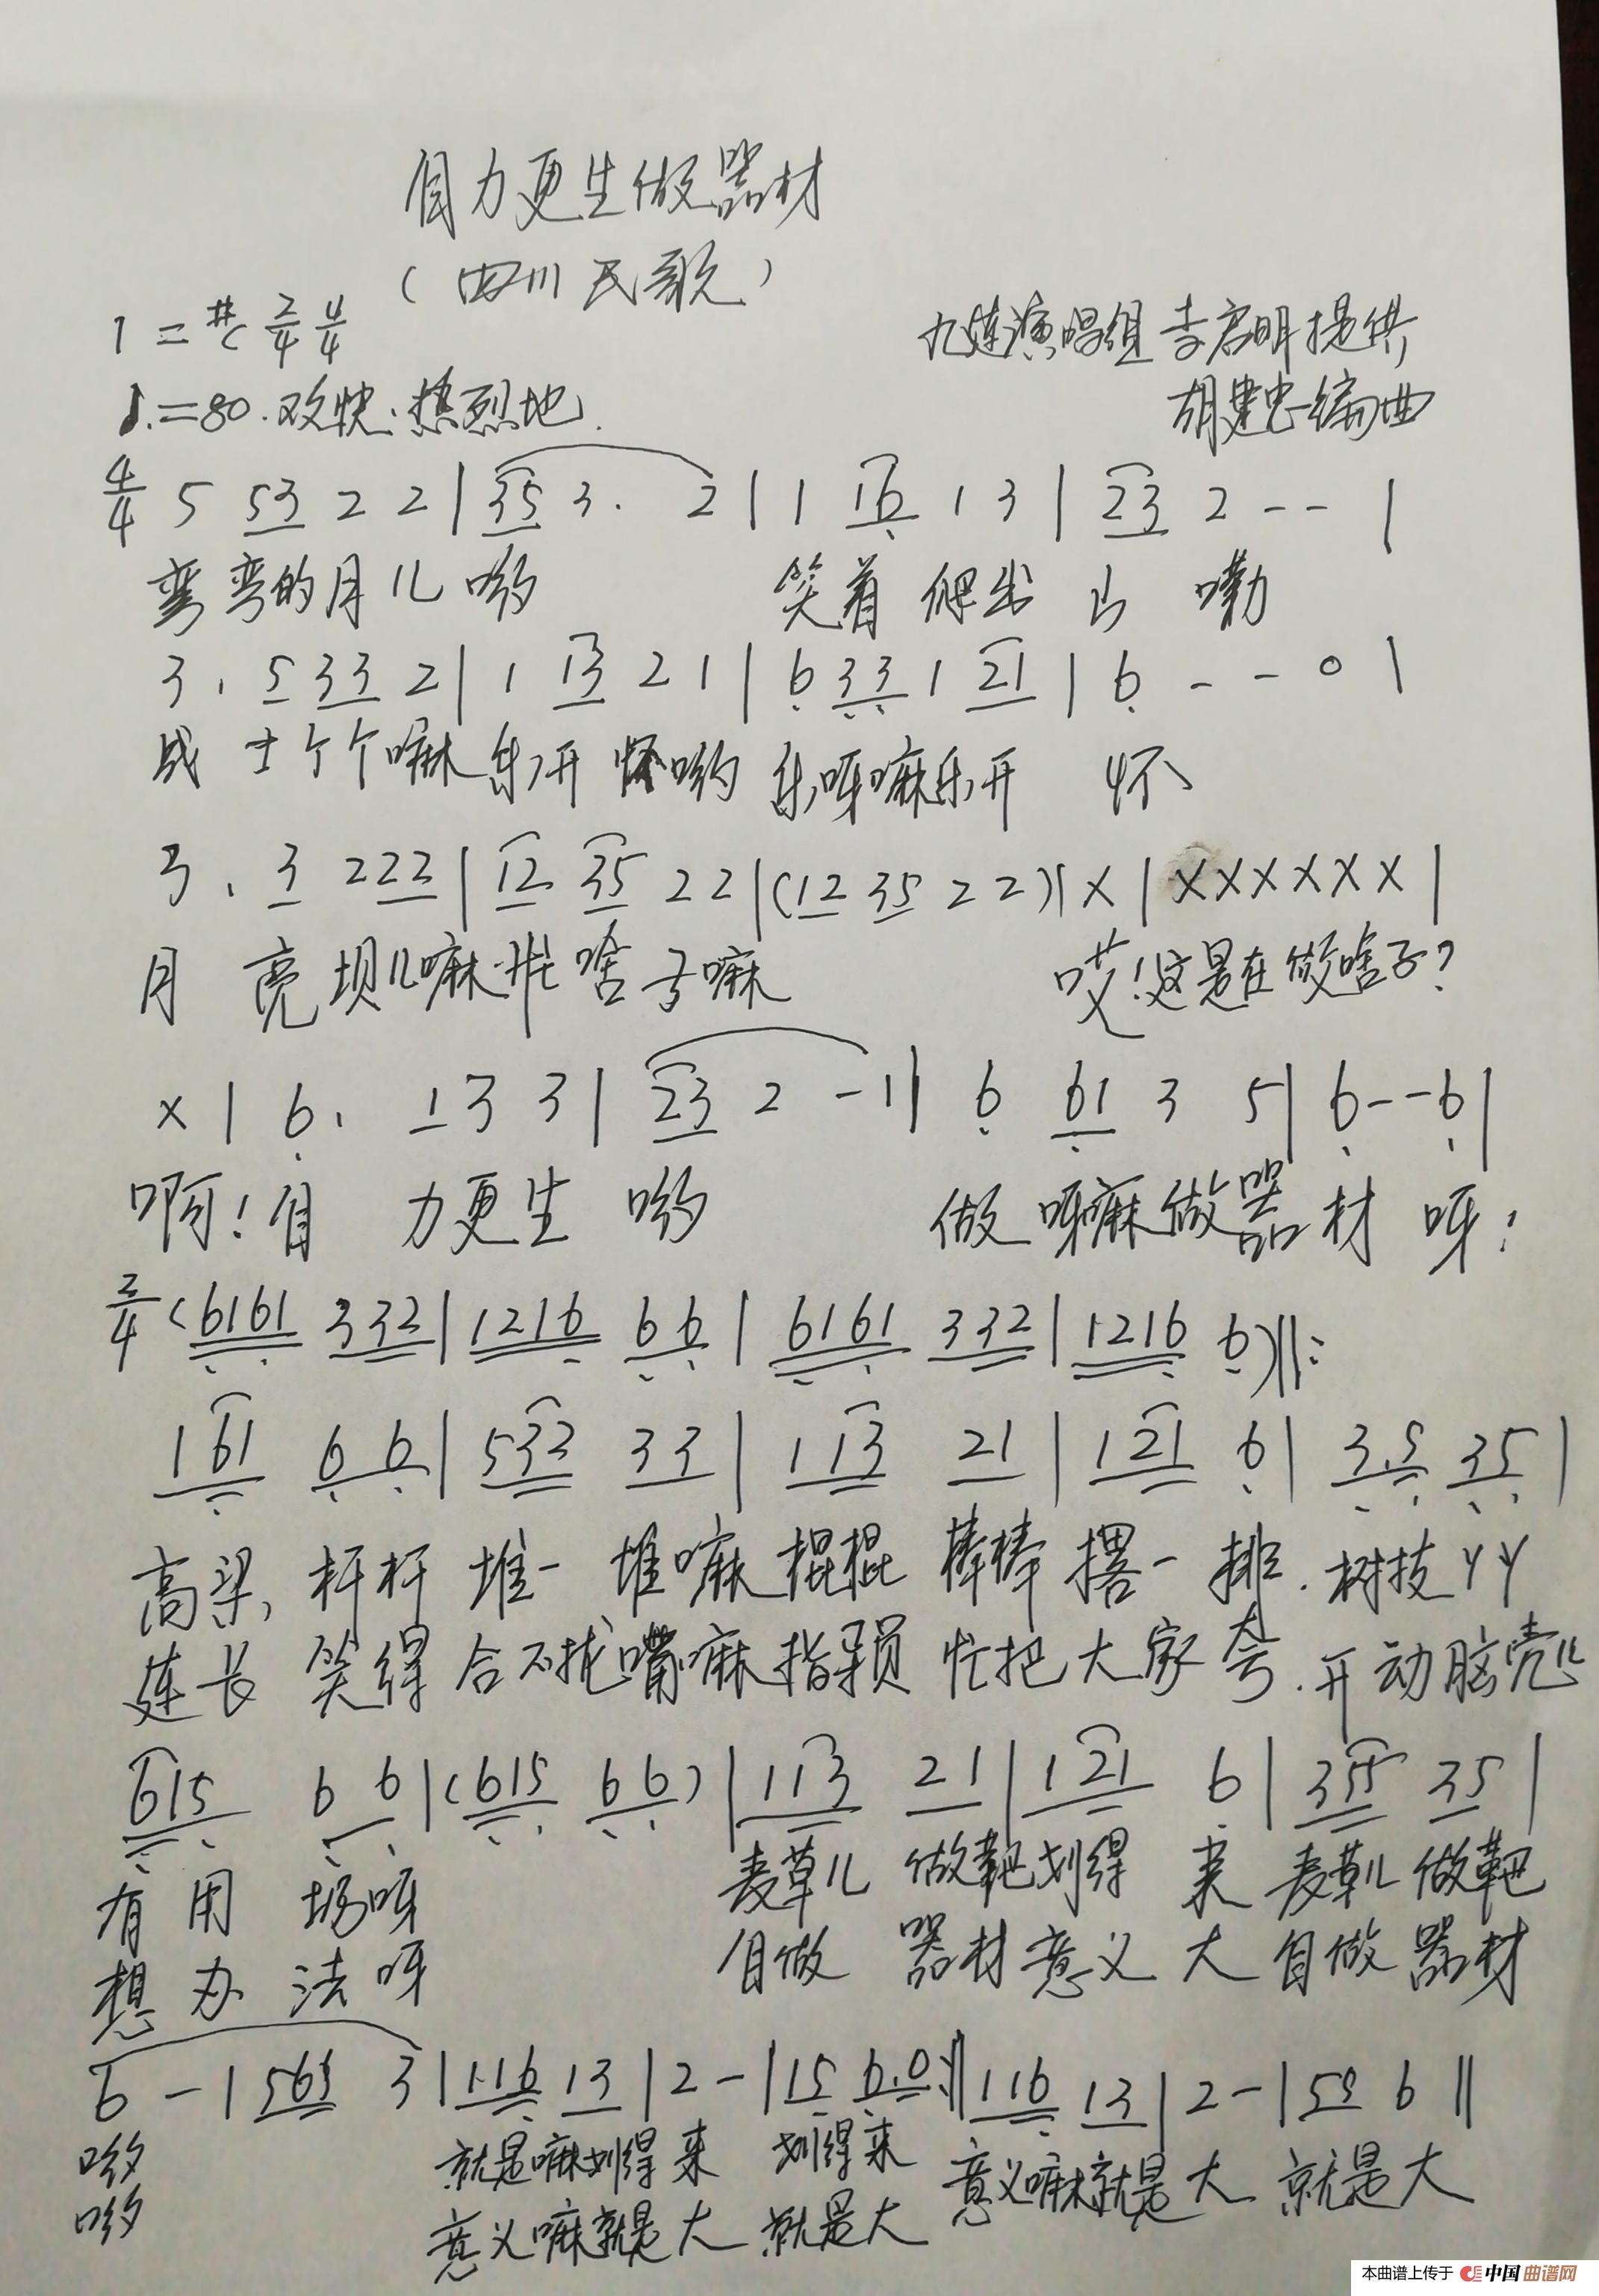 自力更生做器材
(四川民歌)
1=#C 2/4 4/4
九连演唱组李启明提供
♩.=80.欢快、热烈地.
胡建忠编曲
4/4 5 53 2 2 | 35 3. 2 | 1 16 1 3 | 23 2 - - |
弯弯的月儿哟 笑着爬出山嘞
3. 5 33 2 | 1 13 2 1 | 6 33 1 21 | 6 - - 0 |
战士个个嘛乐开怀哟乐呀嘛乐开怀
3. 3 2 22 | 12 35 2 2 | (12 35 2 2) | X | X X X X X X |
月亮坝儿嘛忙啥子嘛 哎!这是在做啥子?
X | 6. 1 3 3 | 23 2 - 1 || 6 61 3 5 | 6 - - 6 |
啊!自力更生哟 做呀嘛做器材呀!
2/4 (6161 332 | 1216 6 6 | 6161 332 | 1216 6) ||:
1 61 6 6 | 533 33 | 1 13 21 | 1 21 6 | 3.5 35 |
高梁杆杆堆一堆嘛棍棍棒棒撂一排.树技丫丫
连长笑得合不拢嘴嘛指导员忙把大家夸.开动脑壳
615 6 6 | (615 66) | 113 21 | 1 21 6 | 355 35 |
有用场呀 麦草儿做靶划得来麦草儿做靶
想办法呀 自做器材意义大自做器材
6 - | 563 3 | 116 13 | 2 - | 15 6.0 :|| 116 13 | 2 - | 59 6 ||
哟 就是嘛划得来 划得来 意义嘛就是大 就是大
哟 意义嘛就是大 就是大
本曲谱上传于 中国曲谱网